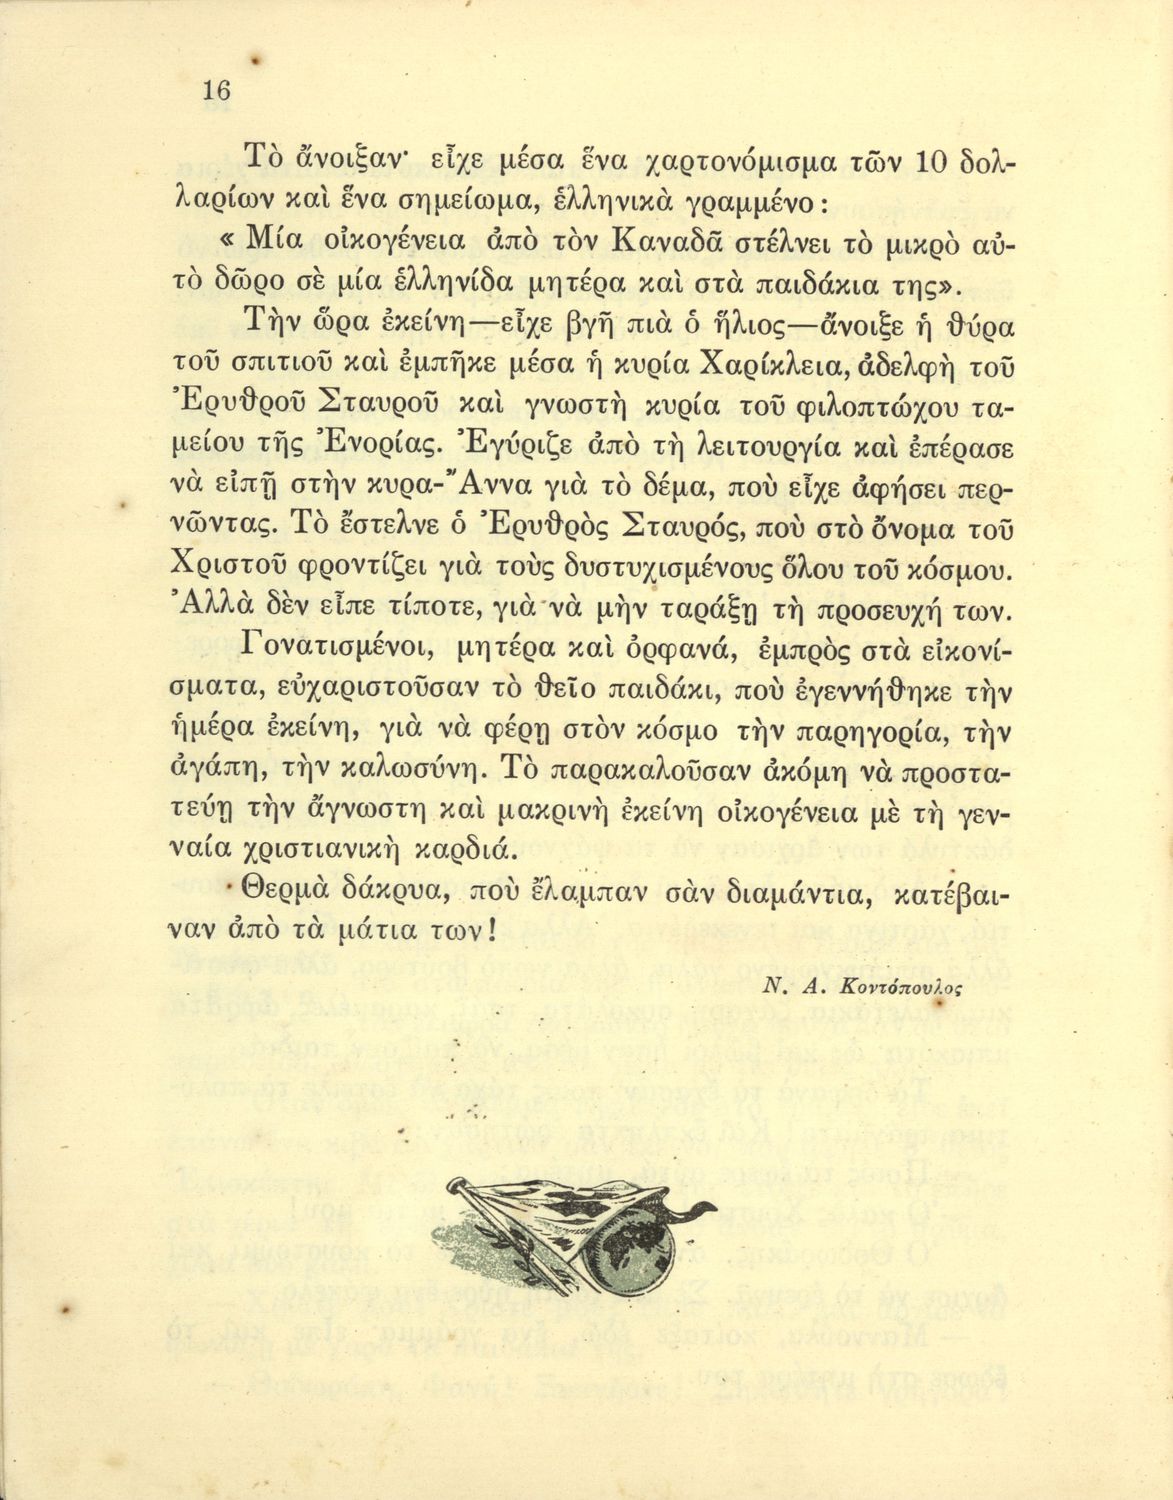 16
Τὸ ἄνοιξαν· εἶχε μέσα ἕνα χαρτονόμισμα τῶν 10 δολ-
λαρίων καὶ ἕνα σημείωμα, ἑλληνικὰ γραμμένο :
« Μία οἰκογένεια ἀπὸ τὸν Καναδᾶ στέλνει τὸ μικρὸ αὐ-
τὸ δῶρο σὲ μία ἑλληνίδα μητέρα καὶ στὰ παιδάκια της».
Τὴν ὥρα ἐκείνη—εἶχε βγῆ πιὰ ὁ ἥλιος—ἄνοιξε ἡ θύρα
τοῦ σπιτιοῦ καὶ ἐμπῆκε μέσα ἡ κυρία Χαρίκλεια, ἀδελφὴ τοῦ
Ἐρυθροῦ Σταυροῦ καὶ γνωστὴ κυρία τοῦ φιλοπτώχου τα-
μείου τῆς Ἐνορίας. Ἐγύριζε ἀπὸ τὴ λειτουργία καὶ ἐπέρασε
νὰ εἰπῇ στὴν κυρα-Ἄννα γιὰ τὸ δέμα, ποὺ εἶχε ἀφήσει περ-
νῶντας. Τὸ ἔστελνε ὁ Ἐρυθρὸς Σταυρός, ποὺ στὸ ὄνομα τοῦ
Χριστοῦ φροντίζει γιὰ τοὺς δυστυχισμένους ὅλου τοῦ κόσμου.
Ἀλλὰ δὲν εἶπε τίποτε, γιὰ νὰ μὴν ταράξῃ τὴ προσευχή των.
Γονατισμένοι, μητέρα καὶ ὀρφανά, ἐμπρὸς στὰ εἰκονί-
σματα, εὐχαριστοῦσαν τὸ θεῖο παιδάκι, ποὺ ἐγεννήθηκε τὴν
ἡμέρα ἐκείνη, γιὰ νὰ φέρῃ στὸν κόσμο τὴν παρηγορία, τὴν
ἀγάπη, τὴν καλωσύνη. Τὸ παρακαλοῦσαν ἀκόμη νὰ προστα-
τεύῃ τὴν ἄγνωστη καὶ μακρινὴ ἐκείνη οἰκογένεια μὲ τὴ γεν-
ναία χριστιανικὴ καρδιά.
Θερμὰ δάκρυα, ποὺ ἔλαμπαν σὰν διαμάντια, κατέβαι-
ναν ἀπὸ τὰ μάτια των!
Ν. Α. Κοντόπουλος